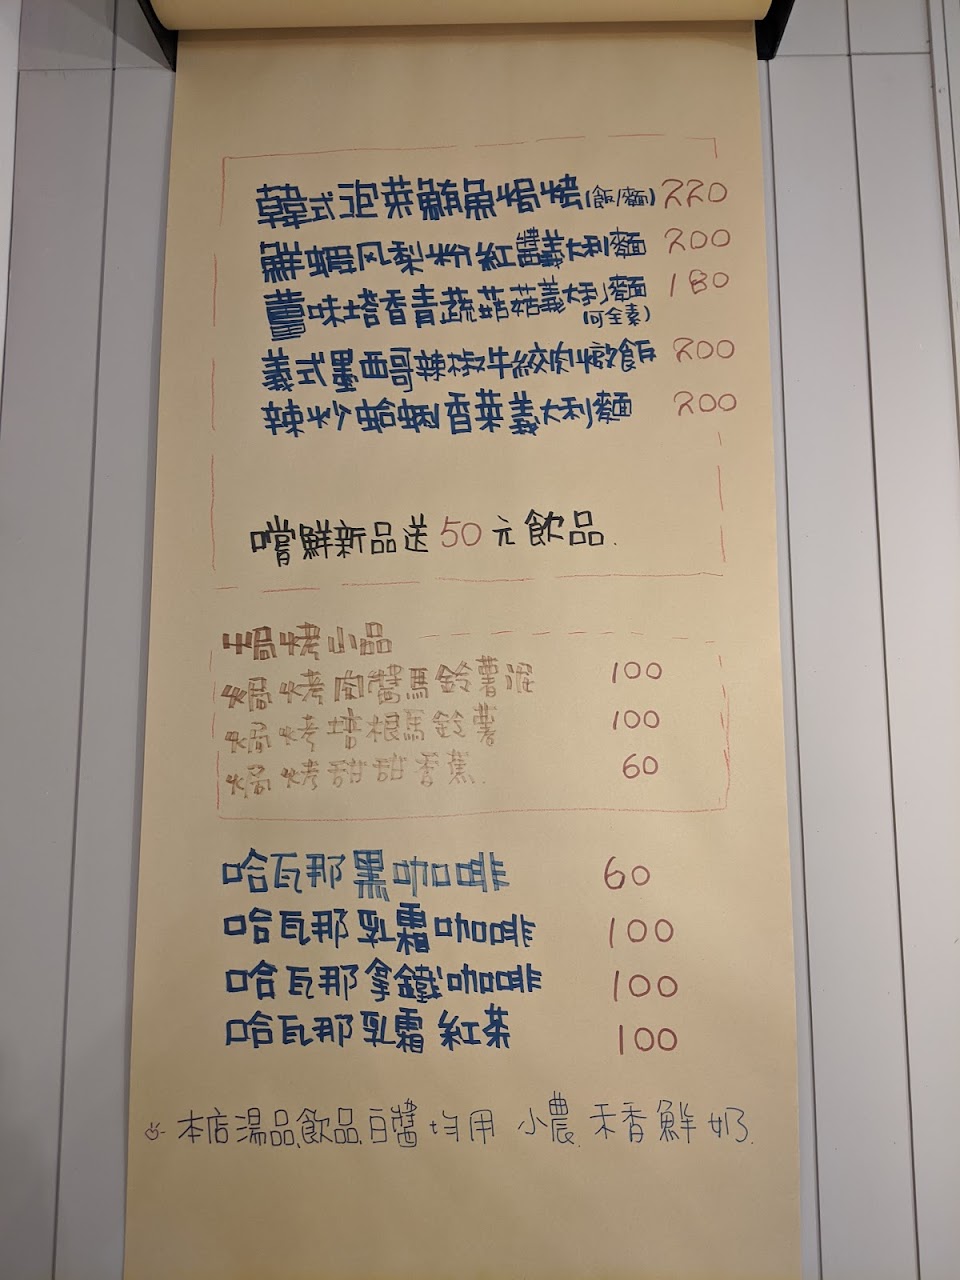 韓式泡菜鮪魚焗烤(飯/麵) 220
鮮蝦凤梨粉紅醬義大利麵 200
薑味塔香青蔬菇菇義大利麵 180
(可全素)
義式墨西哥辣椒牛絞肉燉飯 200
辣炒蛤蜊香菜義大利麵 200
嚐鮮新品送50元飲品.
焗烤小品
焗烤肉醬馬鈴薯泥 100
焗烤培根馬鈴薯 100
焗烤甜甜香蕉. 60
哈瓦那黑咖啡 60
哈瓦那乳霜咖啡 100
哈瓦那拿鐵咖啡 100
哈瓦那乳霜紅茶 100
本店湯品、飲品、白醬均用 小農.禾香鮮奶.